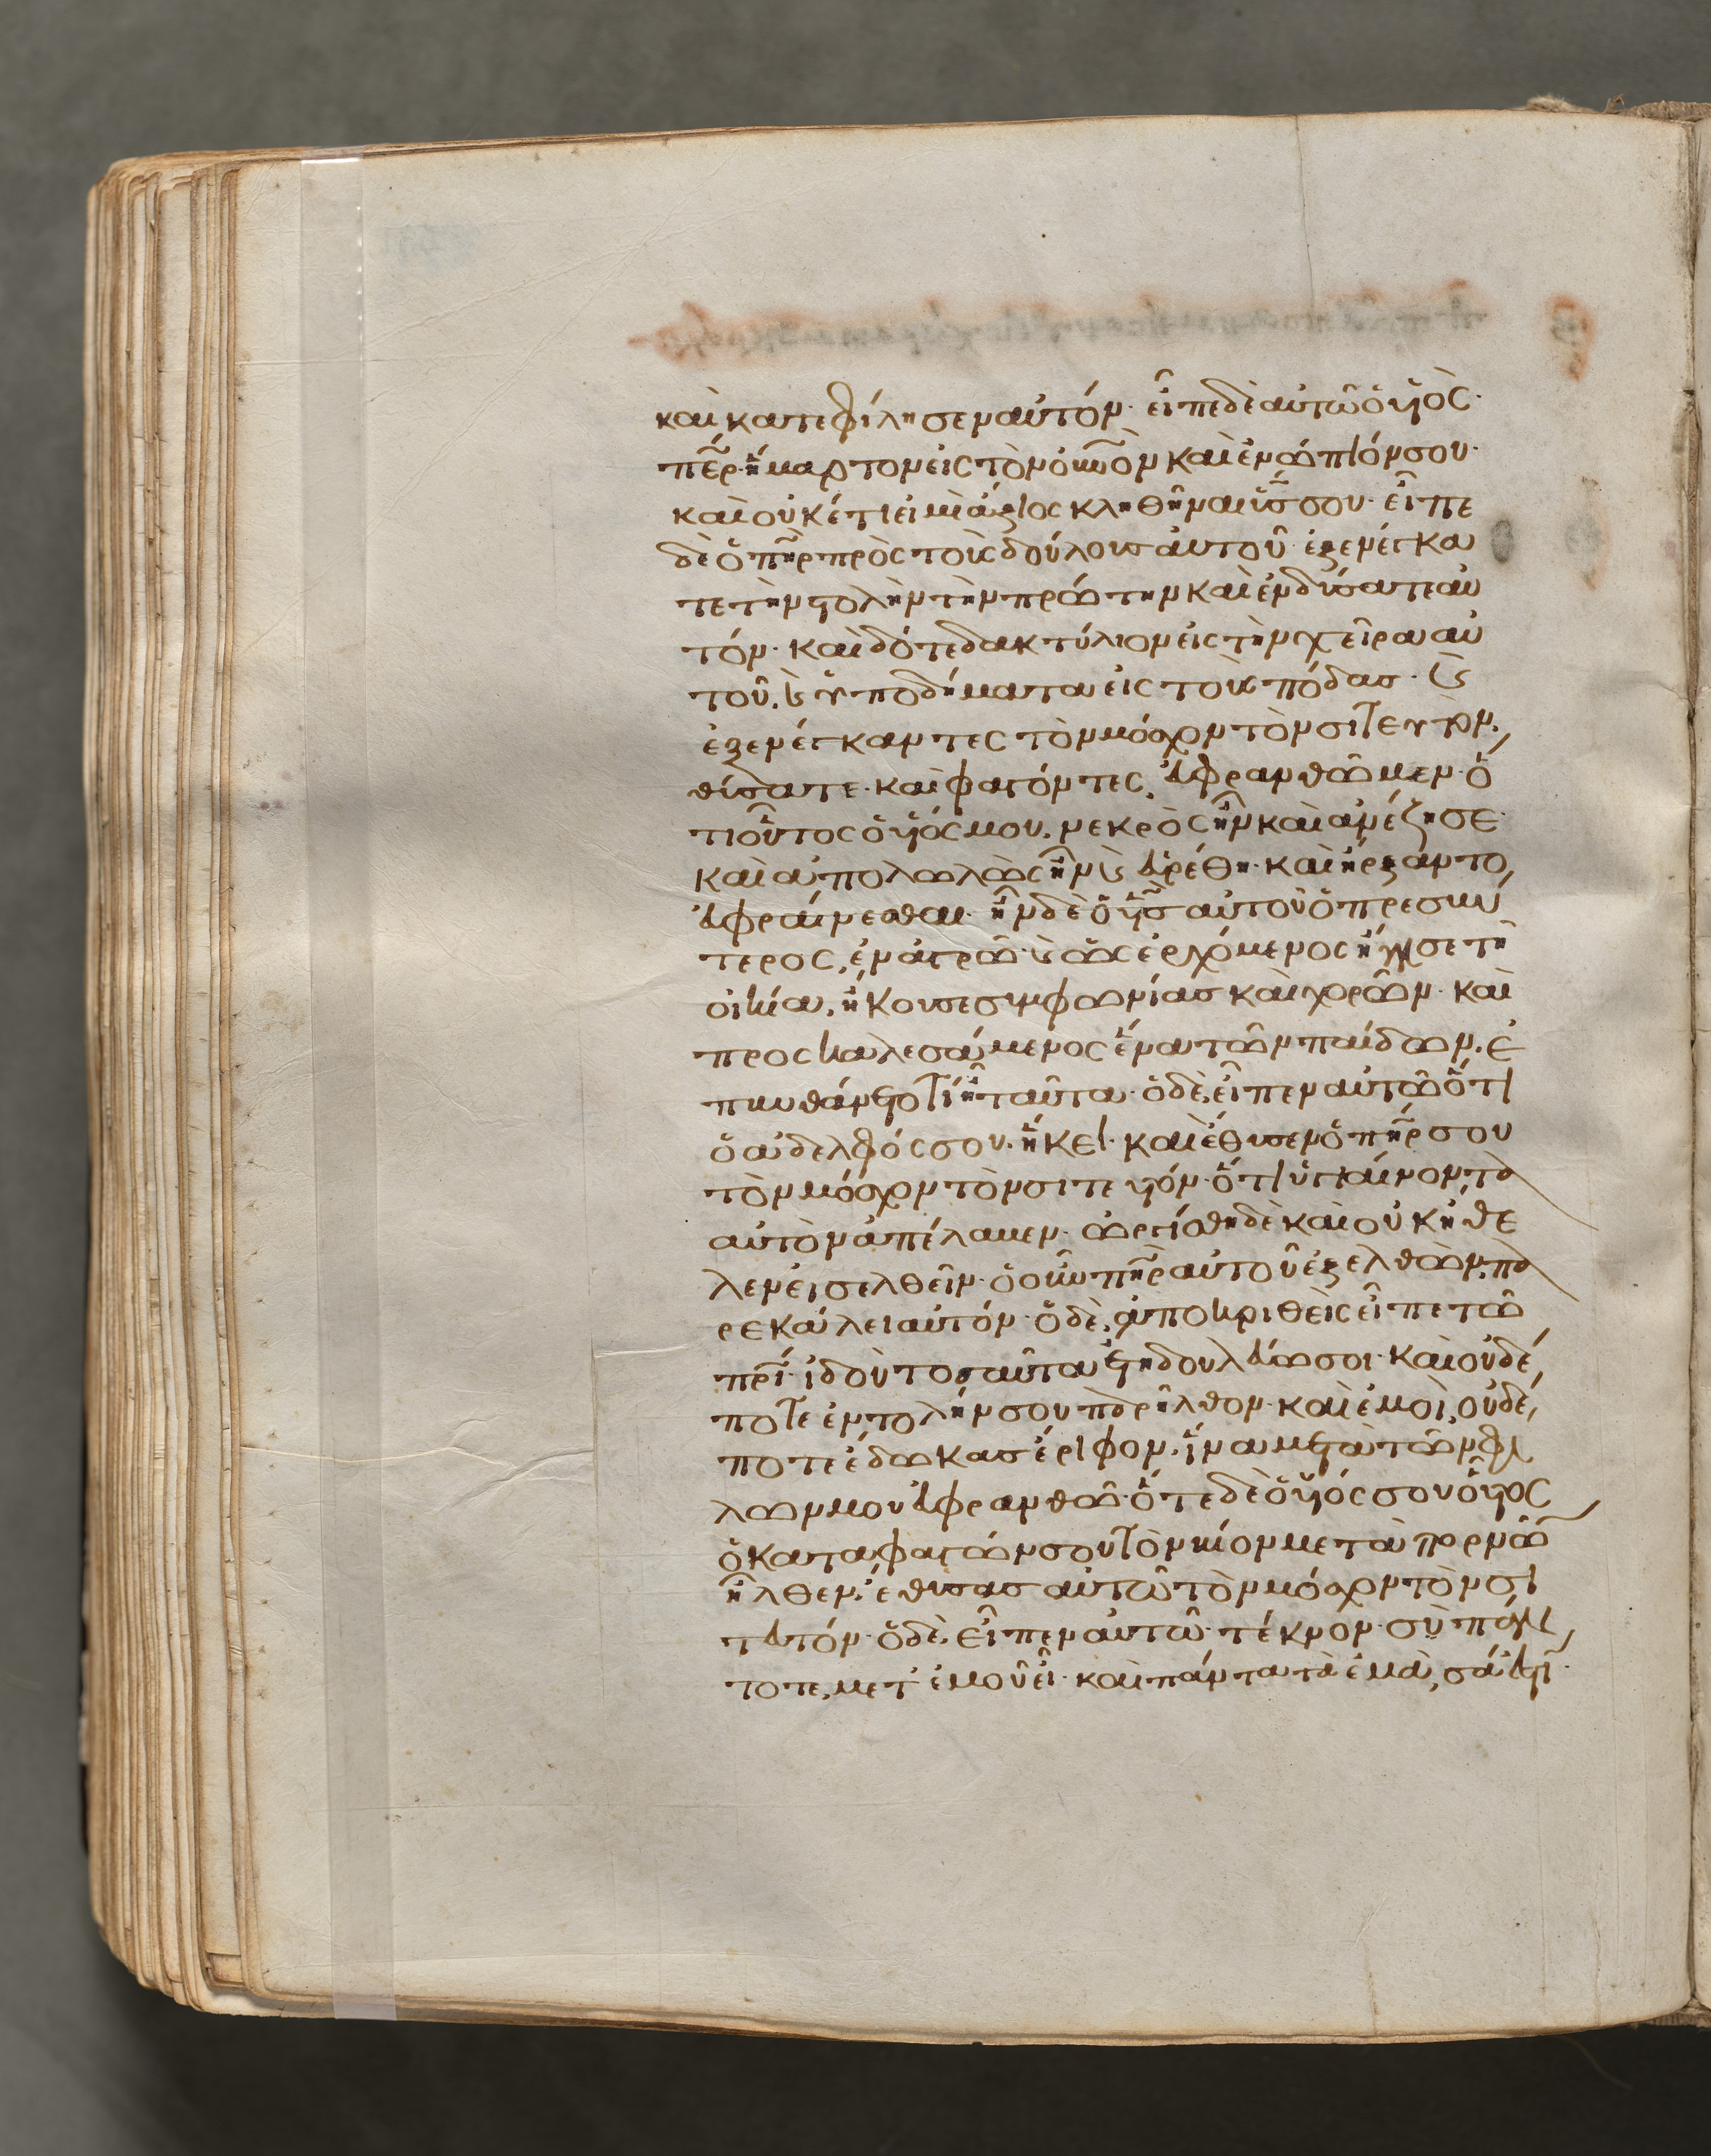 καὶ κατεφίλησεν αὐτόν· εἶπε δὲ αὐτῶ ὁ υἱὸς·
πε̅ρ· ἥμαρτον εἰς τὸν οὐ̅νον καὶ ἐνώπιόν σου·
καὶ οὐκέτι εἰμὶ ἄξιος κληθῆναι υἱ̅ς σου· εἶπε
δὲ ὁ πη̅ρ πρὸς τοὺς δούλους αὐτοῦ· ἐξενέγκα
τε τὴν στολὴν τὴν πρώτην καὶ ἐνδύσατε αὐ
τόν· καὶ δότε δακτύλιον εἰς τὴν χεῖρα αὐ
τοῦ. ϗ ὑποδήματα εἰς τοὺς πόδας· ϗ
ἐξενέγκαντες τὸν μόσχον τὸν σιτευτὸν,
θύσατε· καὶ φαγόντες, εὐφρανθῶμεν· ὅ
τι οὗτος ὁ υἱός μου, νεκρὸς ἦν καὶ ἀνέζησε·
καὶ ἀπολωλὼς ἦν ϗ εὑρέθη· καὶ ἤρξαντο,
εὐφραίνεσθαι· ἦν δὲ ὁ υἱ̅ς αὐτοῦ ὁ πρεσβύ
τερος, ἐν ἀγρῶ· ϗ ὡς ἐρχόμενος ἤγγισε τῆ
οἰκία, ἤκουσε συμφωνίας καὶ χορῶν· καὶ
προσκαλεσάμενος ἕνα τῶν παίδων, ἐ
πυνθάνετο τί ἦ ταῦτα· ὁ δὲ, εἶπεν αὐτῶ ὅτι
ὁ ἀδελφός σου, ἥκει· καὶ ἔθυσεν ὁ πη̅ρ σου
τὸν μόσχον τὸν σιτευτόν· ὅτι ὑγιαίνοντα
αὐτὸν ἀπέλαβεν· ὠργίσθη δὲ καὶ οὐκ ἤθε
λεν εἰσελθεῖν· ὁ οὖν πη̅ρ αὐτοῦ ἐξελθὼν, πα
ρεκάλει αὐτόν· ὁ δὲ, ἀποκριθεὶς εἶπε τῶ
πρ̅ι· ἰδοὺ τοσαῦτα ἔτη δουλεύω σοι· καὶ οὐδέ
ποτε ἐντολήν σου παρῆλθον· καὶ ἐμοὶ, οὐδέ
ποτε ἔδωκας ἔριφον, ἵνα μετὰ τῶν φί
λων μου εὐφρανθῶ· ὅτε δὲ ὁ υἱός σου οὗτος
ὁ καταφαγών σου τὸν βίον μετὰ πορνῶν
ἦλθεν, ἔθυσας αὐτῶ τὸν μόσχον τὸν σι
τευτόν· ὁ δὲ, εἶπεν αὐτῶ· τέκνον· σὺ πάν
τοτε, μετ ἐμοῦ εἶ· καὶ πάντα τὰ ἐμὰ, σά ἐστι·